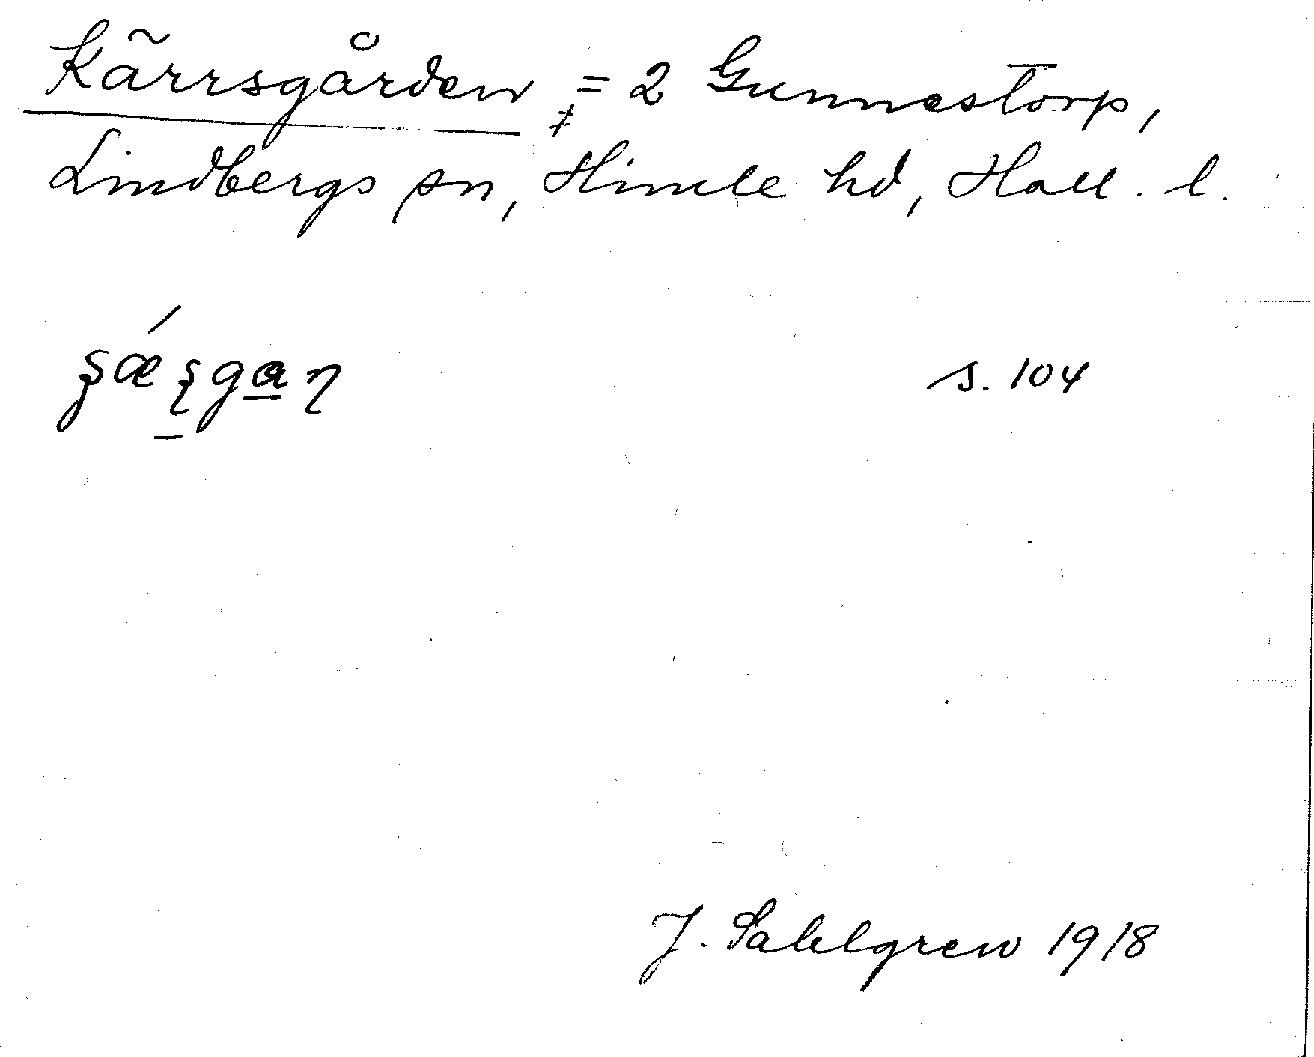 Kärrsgården ≠ = 2 Gunnestorp,
Lindbergs sn, Himle hd, Hall. l.
s. 104
J. Sahlgren 1918